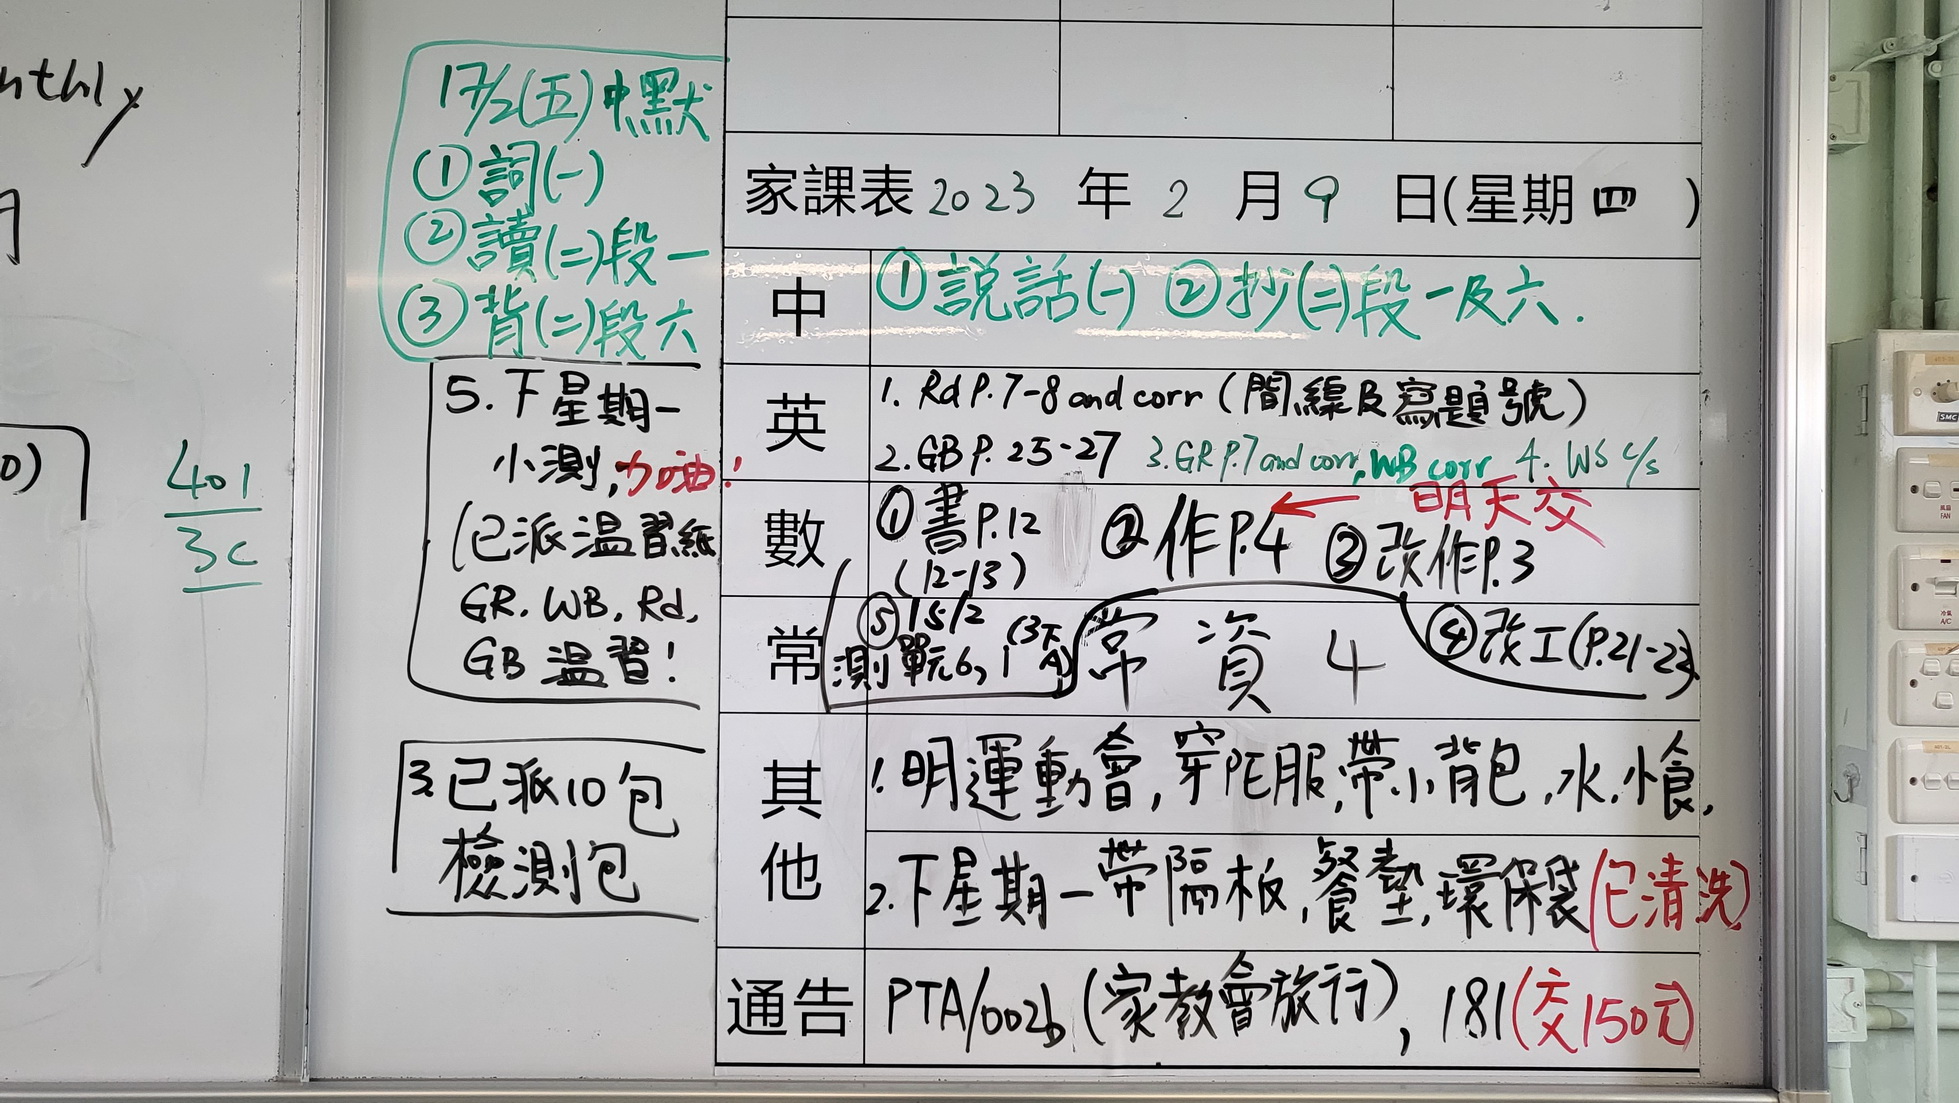 nthly
401
3C
17/2(五)中默
①詞(一)
②讀(二)段一
③背(二)段六
5.下星期一
小測,加油!
(已派溫習紙
GR. WB. Rd.
GB 溫習!
3.已派10包
檢測包
家課表2023 年 2 月 9 日(星期四)
中 ①說話(一) ②抄(二)段一及六.
英 1. Rd P.7-8 and corr (間線及寫題號)
2. GB P. 25-27 3. GR P.7 and corr, WB corr 4. WS c/s
明天交
數 ①書P.12 ②作P.4 ③改作P.3
(12-13)
④改工(P.21-23)
⑤15/2
測單元6, 1
常 常資4
其他 1.明運動會,穿PE服,帶小背包,水,小食.
2.下星期一帶隔板,餐墊,環保袋(已清洗)
通告 PTA/002b (家教會旅行), 181(交150元)